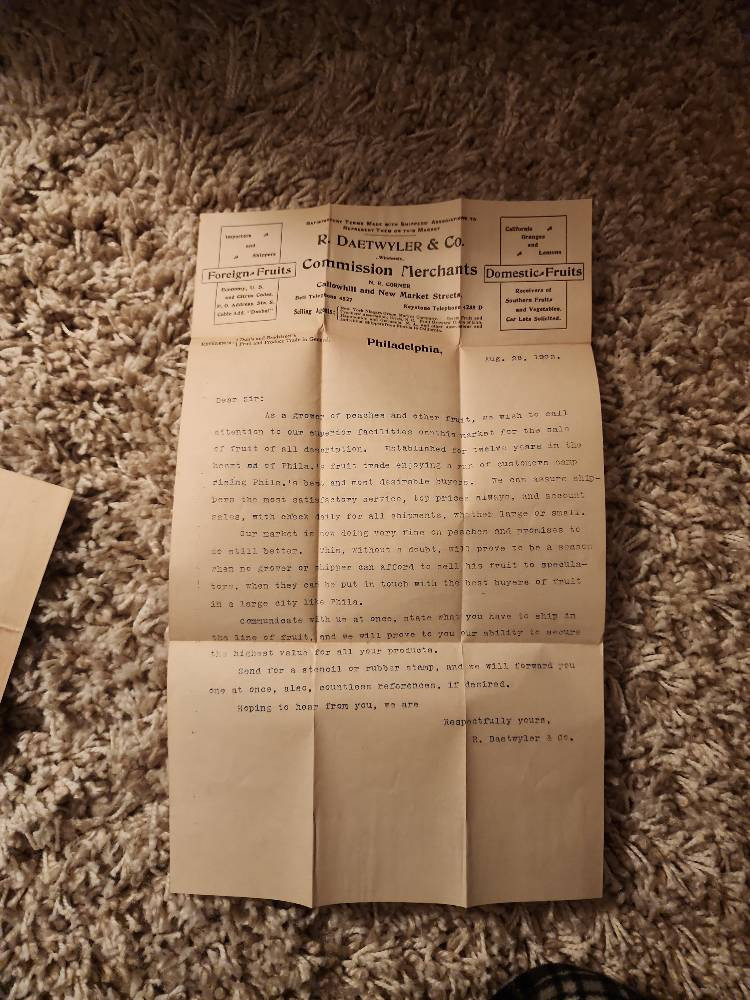 Satisfactory Terms Made with Shippers' Associations to
Represent Them on this Market
R. Daetwyler & Co.
Wholesale
Commission Merchants
N. E. Corner
Callowhill and New Market Streets,
Bell Telephone 4527
Keystone Telephone
Selling Agents:
Importers
and
Shippers
Foreign Fruits
Economy, U. S.
and Citrus Codes.
P. O. Address, Sta. S.
Cable Add.
California
Oranges
and
Lemons
Domestic Fruits
Receivers of
Southern Fruits
and Vegetables.
Car Lots Solicited.
References:
Fruit and Produce Trade in General.
Philadelphia,
Aug. 28,
Dear Sir:
As a grower of peaches and other fruit, we wish to call
attention to our superior facilities on this market for the sale
of fruit of all description. Established for twelve years in the
heart of Phila.'s fruit trade enjoying a run of customers comp
rising Phila.'s best and most desirable buyers. We can assure ship-
pers the most satisfactory service, top prices always, and account
sales, with check daily for all shipments, whether large or small.
Our market is now doing very fine on peaches and promises to
do still better. This, without a doubt, will prove to be a season
when no grower or shipper can afford to sell his fruit to specula-
tors, when they can be put in touch with the best buyers of fruit
in a large city like Phila.
Communicate with us at once, state what you have to ship in
the line of fruit, and we will prove to you our ability to secure
the highest value for all your products.
Send for a stencil or rubber stamp, and we will forward you
one at once, also, countless references, if desired.
Hoping to hear from you, we are
Respectfully yours,
R. Daetwyler & Co.